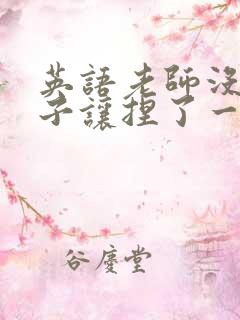 英語老師沒
子讓捏了一
谷慶堂